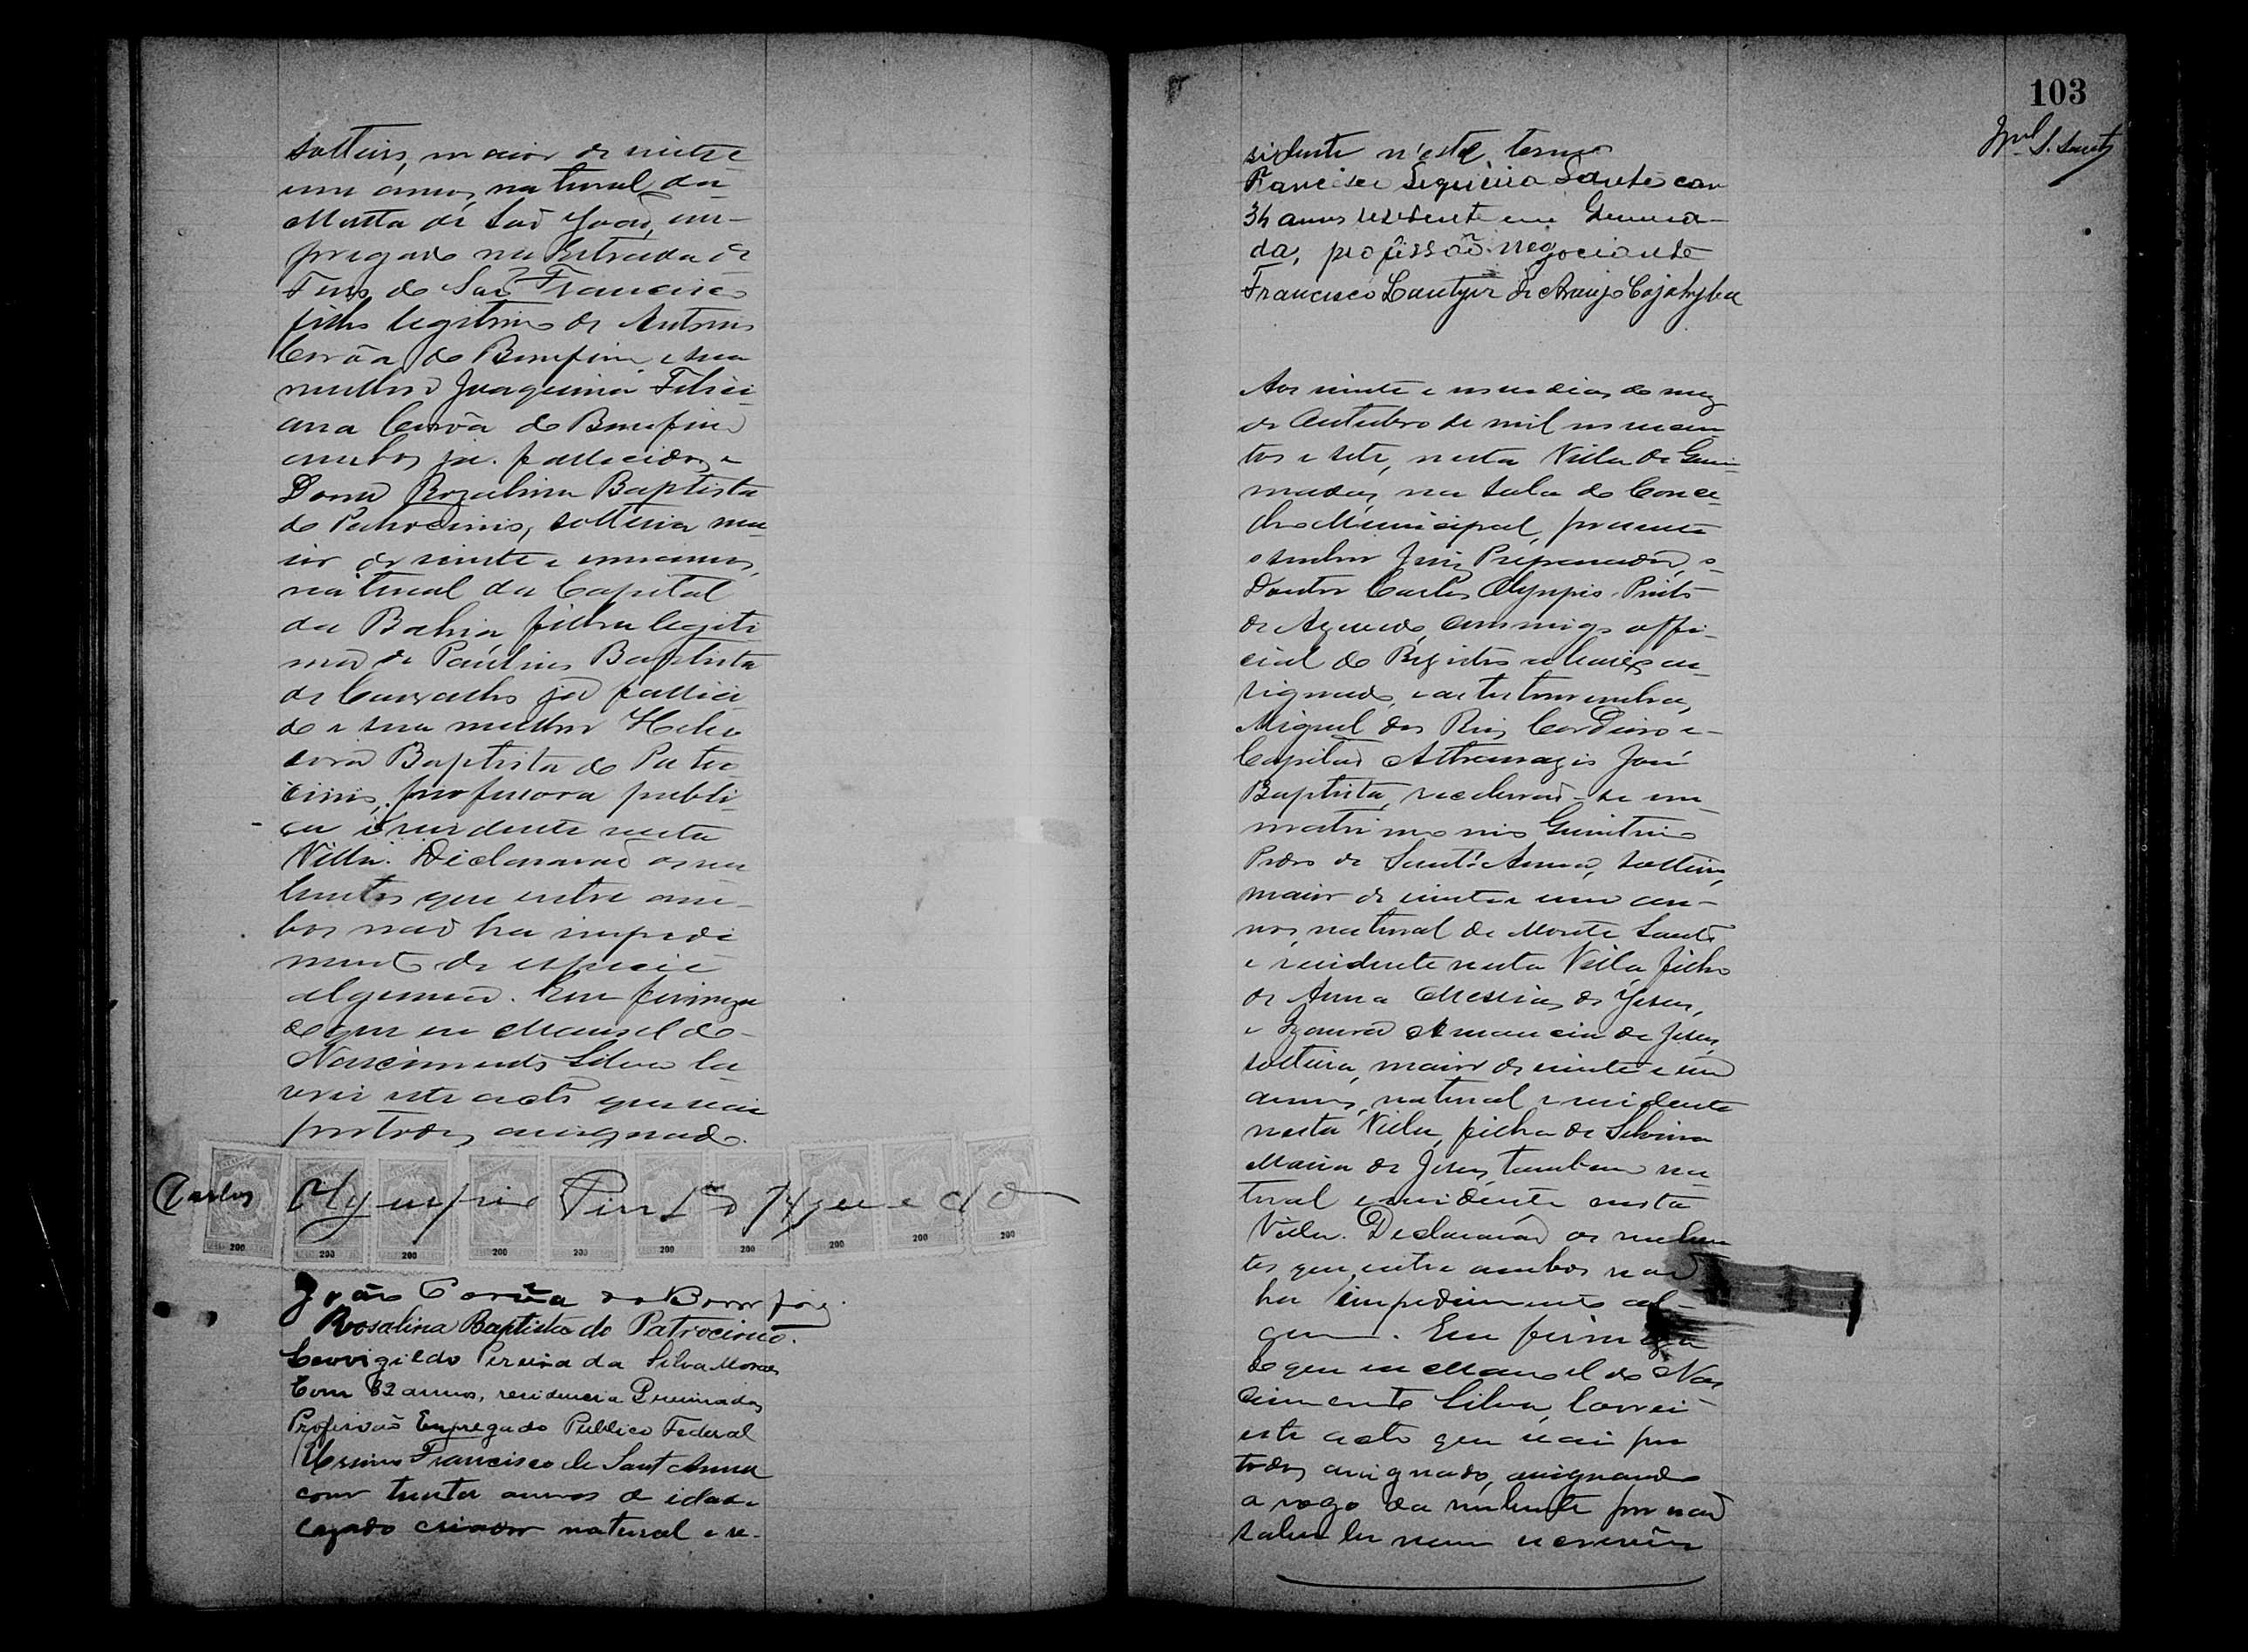 solteiro, maior de vinte e
um annos, natural da
Matta de São João, em-
pregado na Estrada de
Ferro de São Francisco
filho legitimo de Antonio
Corrêa do Bomfim e sua
mulher Joaquina Felici
ana Corrêa do Bomfim
ambos já fallecidos e
Dona Rozalina Baptista
do Patrocinio, solteira ma
ior de vinte e um annos,
natural da Capital
da Bahia, filha legiti
ma de Paulino Baptista
de Carvalho já falleci
do e sua mulher
Baptista do Patro
cinio, professora publi
ca e residente nesta
Villa. Declararão os nu
bentes que entre am-
bos não ha impedi
mento de especie
alguma. Em firmeza
do que eu Manoel do
Nascimento Silva la
vrei este acto que vai
por todos assignado.
Carlos Olympio Pinto Azevedo
200 200 200 200 200 200 200 200 200 200
João Corrêa do Bomfim.
Rosalina Baptista do Patrocinio.
Leovigildo Pereira da Silva Moraes
Com 32 annos, residencia Queimadas
Profissão Empregado Publico Federal
Francisco de Sant Anna
com trinta annos de idade
cazado criador natural e re-
103
sidente n'este termo
Francisco Siqueira Santos com
34 annos residente em Queima-
da, profissão negociante
Francisco Lantyer de Araujo Cajahyba
Aos vinte e nove dias do mez
de Outubro de mil novecen
tos e sete, nesta Villa de Quei
madas, na sala do Conce
lho Municipal, presente
o senhor Juiz Preparador, o
Doutor Carlos Olympio Pinto
de Azevedo, commigo offi-
cial do Registro abaixo as-
signado, e as testemunhas,
Miguel dos Reis Cordeiro e
Capitão José
Baptista, receberão-se em
matrimonio
de Sant'Anna, solteiro,
maior de vinte e um an-
nos, natural de Monte Santo
e residente nesta Villa, filho
de Anna Messias de Jesus,
e Izaura Amancia de Jesus,
solteira, maior de vinte e um
annos, natural e residente
nesta Villa, filha de Silvina
Maria de Jesus, tambem na
tural e residente nesta
Villa. Declararão os nuben
tes que entre ambos não
ha impedimento al-
gum. Em firmeza
do que eu Manoel do Nas
cimento Silva, lavrei
este acto que vai por
todos assignado, assignando
a rogo da nubente por não
saber ler nem escrever